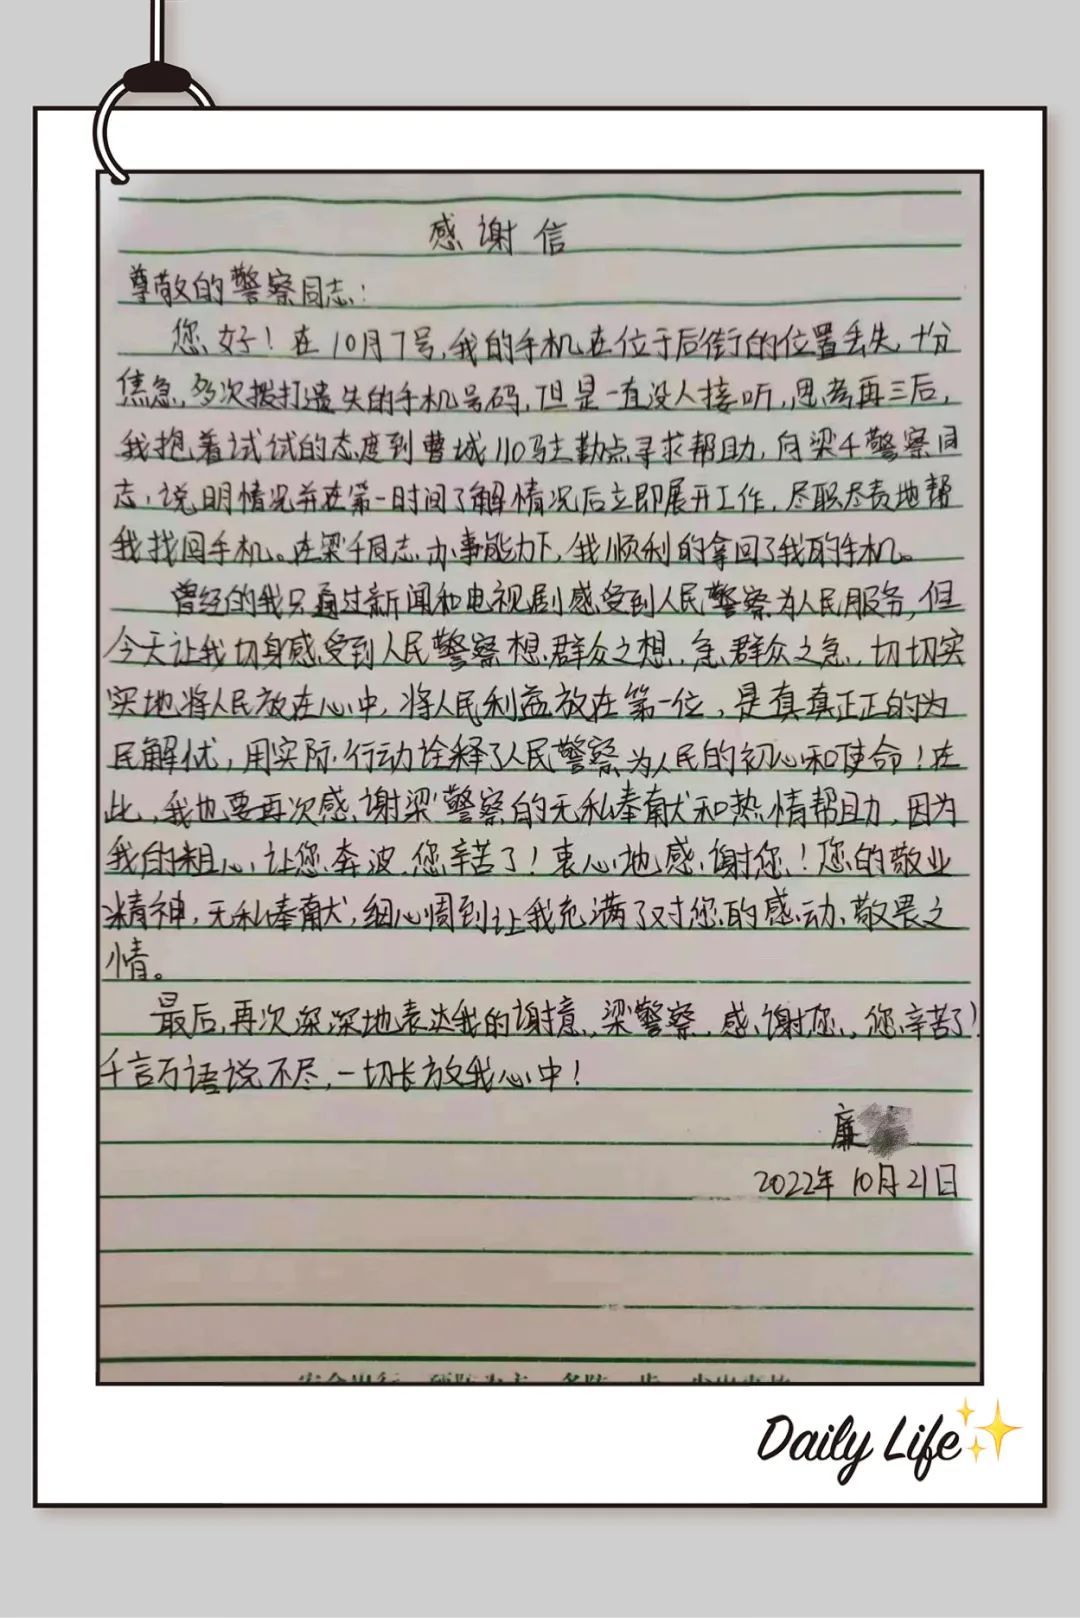 感谢信
尊敬的警察同志：
您好！在10月7号，我的手机在位于后街的位置丢失，十分
焦急，多次拨打遗失的手机号码，但是一直没人接听，思考再三后，
我抱着试试的态度到曹城110驻勤点寻求帮助，向梁千警察同
志，说明情况并在第一时间了解情况后立即展开工作，尽职尽责地帮
我找回手机。在梁千同志办事能力下，我顺利的拿回了我的手机。
曾经的我只通过新闻和电视剧感受到人民警察为人民服务，但
今天让我切身感受到人民警察想群众之想，急群众之急，切切实
实地将人民放在心中，将人民利益放在第一位，是真真正正的为
民解忧，用实际行动诠释了人民警察为人民的初心和使命！在
此，我也要再次感谢梁警察的无私奉献和热情帮助，因为
我的粗心，让您奔波，您辛苦了！衷心地感谢您！您的敬业
精神，无私奉献，细心周到让我充满了对您的感动、敬畏之
情。
最后，再次深深地表达我的谢意，梁警察，感谢您，您辛苦了！
千言万语说不尽，一切长放我心中！
廉
2022年10月21日
Daily Life